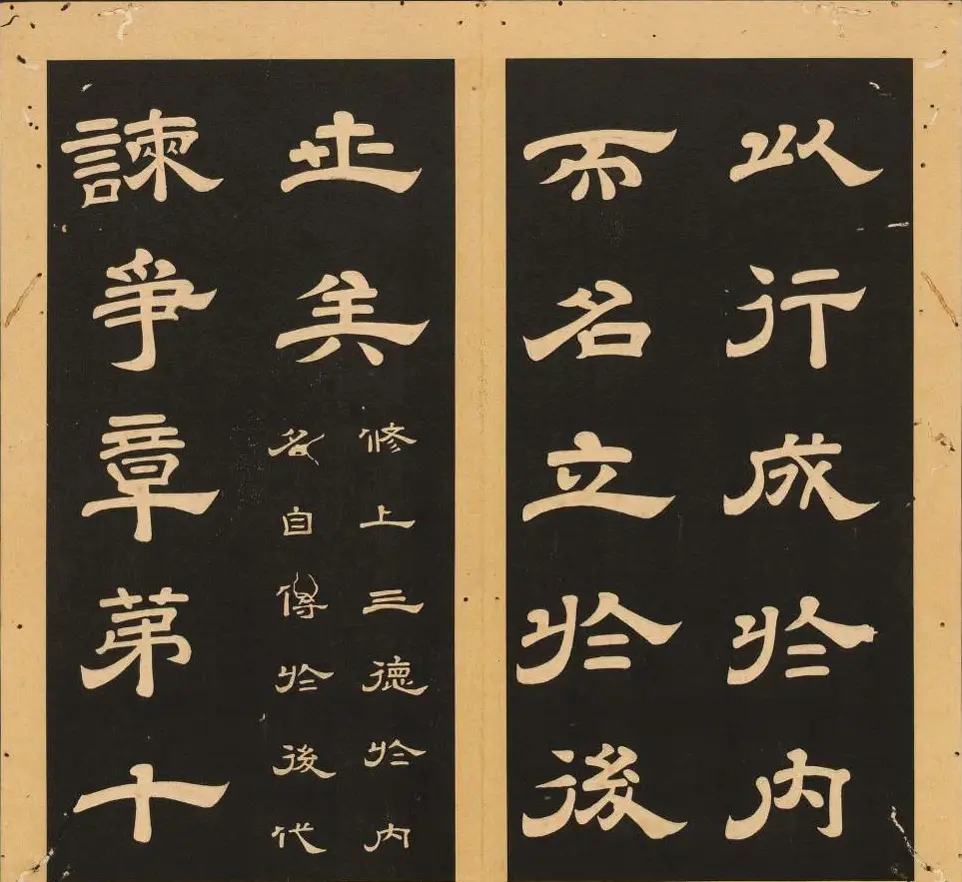 以行成於内
而名立於後
世矣
修上三德於内
名自傳於後代
諫爭章第十